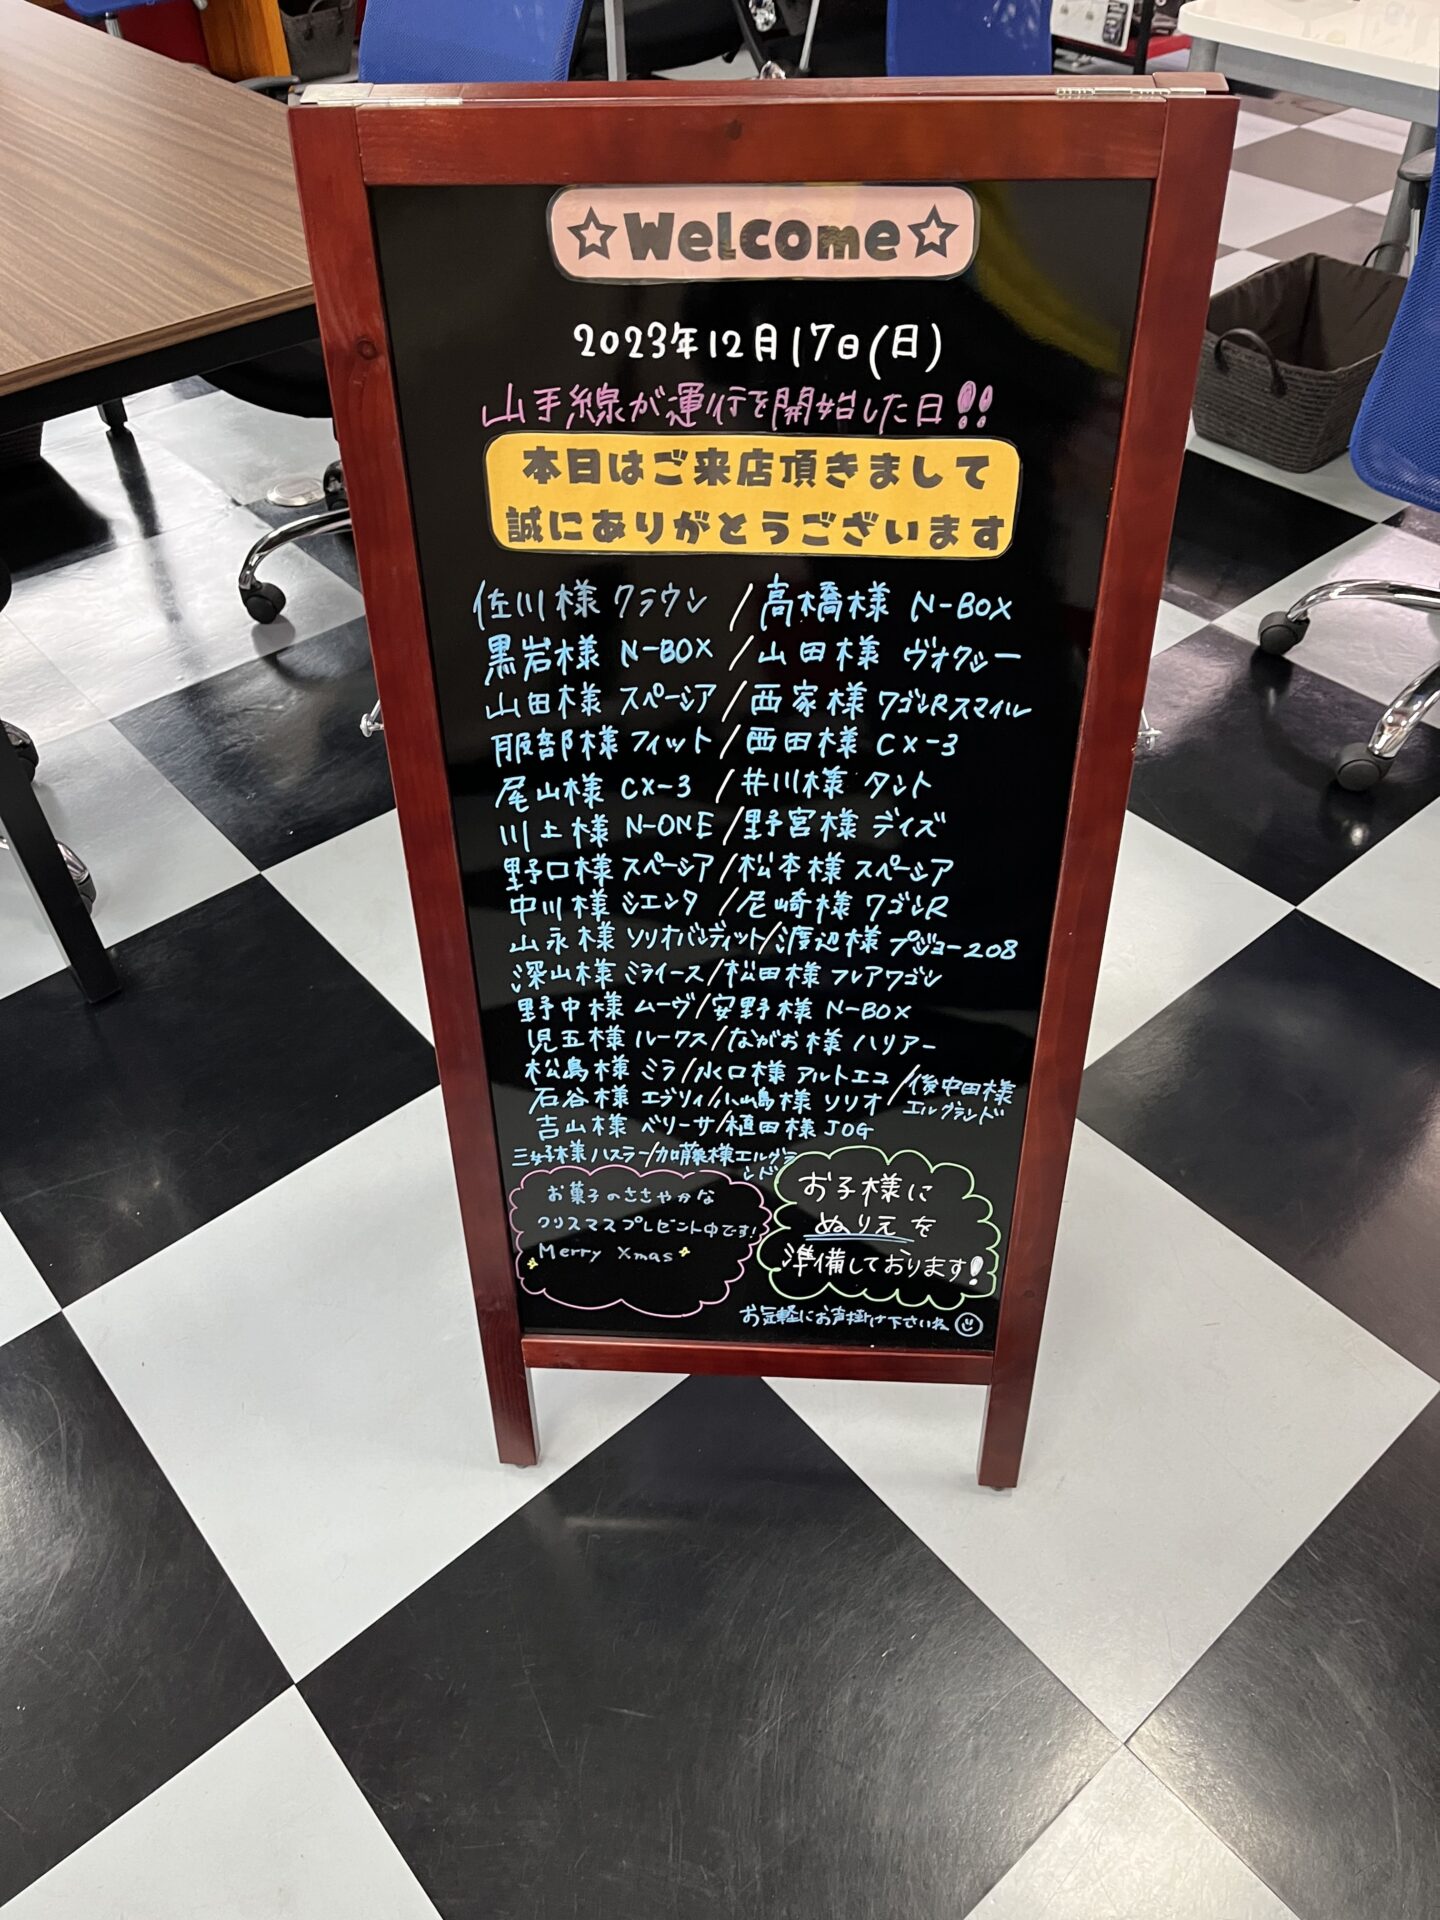 ☆Welcome☆
2023年12月17日(日)
山手線が運行を開始した日!!
本日はご来店頂きまして
誠にありがとうございます
佐川様 クラウン / 高橋様 N-BOX
黒岩様 N-BOX / 山田様 ヴォクシー
山田様 スペーシア / 西家様 ワゴンRスマイル
服部様 フィット / 西田様 CX-3
尾山様 CX-3 / 井川様 タント
川上様 N-ONE / 野宮様 デイズ
野口様 スペーシア / 松本様 スペーシア
中川様 シエンタ / 尼崎様 ワゴンR
山永様 ソリオバンディット / 渡辺様 プジョー208
深山様 ミライース / 松田様 フレアワゴン
野中様 ムーヴ / 安野様 N-BOX
児玉様 ルークス / ながお様 ハリアー
松島様 ミラ / 水口様 アルトエコ / 後中田様 エルグランド
石谷様 エブリィ / 小山島様 ソリオ
吉山様 ベリーサ / 植田様 JOG
三好様 ハスラー / 加藤様 エルグランド
お菓子のささやかな
クリスマスプレゼント中です!
Merry Xmas
お子様に
ぬりえを
準備しております!
お気軽にお声掛け下さいね